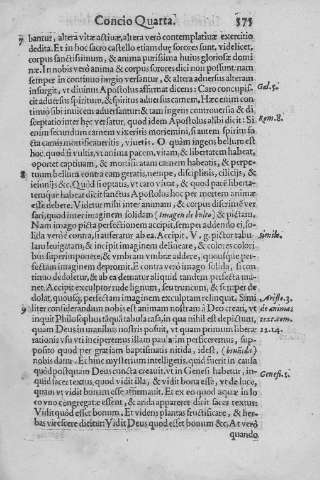 Concio Quarta. 575
7 bantur, altera vitæ actiuæ, altera verò contemplatiuæ exercitio
dedita. Et in hoc sacro castello etiam duę sorores sunt, videlicet,
corpus sanctissimum, & anima purissima huius gloriosæ domi
næ. In nobis verò anima & corpus sorores dici non possunt: nam
semper in continuo iurgio versantur, & altera aduersus alteram
insurgit, vt diuinus Apostolus affirmat dicens: Caro concupis- Gal. 5.
cit aduersus spiritum, & spiritus aduersus carnem, Hæc enim con
tinuò sibi inuicem aduersantur: & tam ingens controuersia & di
sceptatio inter hęc versatur, quod idem Apostolus alibi dicit: Si Rom. 8.
enim secundum carnem vixeritis moriemini, si autem spiritu fa
cta carnis mortificaueritis, viuetis. O quàm ingens bellum est
hoc, quod si vultis, vt anima pacem, vitam, & libertatem habeat,
oportet captiuam, & mortificatam carnem habeatis, & perpe-
8 tuum bellum contra eam geratis, nempe, disciplinis, cilicijs, &
ieiunijs &c. Quòd si optatis, vt caro viuat, & quod pacẽ liberta-
temque habeat dicit sanctus Apostolus hoc per mortem animæ
esse debere. Videtur mihi inter animam, & corpus discrimẽ ver
sari, quod inter imaginem solidam (Imagen de bulto) & pictam.
Nam imago picta perfectionem accipit, semper addendo ei, so-
lida verò è contra, si auferatur ab ea. Accipit, V. g. pictor tabu- Simile.
lam leuigatam, & incipit imaginem delineare, & colores colori-
bus superimponere, & vmbram vmbræ addere, quousque per-
fectam imaginem depromit. E contra verò imago solida,
timo dedoletur, & ab ea dematur aliquid tandem perfecta ma-
net. Accipit exculptor rude lignum, seu truncum, & semper de
dolat, quousq; perfectam imaginem exculptam relinquit. Simi Aristo. 3.
9 liter considerandum nobis est animam nostram: à Deo creari, vt de anima
inquit Philosophus sicut tabula rasa, in qua nihil est depictum, text.
quam Deus in manibus nostris posuit, vt quam primum liberæ 14.
rationis vsu vti inceperimus illam paulatim perficeremus, sup-
posito quod per gratiam baptismatis nitida, idest,
nobis datur. Et huc mysterium intelligens, quid fuerit in causa
quòd postquam Deus cuncta creauit, vt in Genesi habetur, in- Genes. 1.
quid sacer textus, quod vidit illa, & vidit bona esse, vt de luce,
quam vt vidit bonum esse affirmauit. Et ex eo quod aquæ in lo
co vno congregatæ essent, & arida appareret dicit sacer textus:
Vidit quòd esset bonum. Et videns plantas fructificare, & her-
bas virescere dicitur: Vidit Deus quod esset bonum &c. At verò
quando